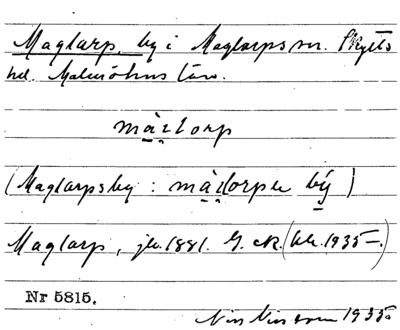 Maglarp, by i Maglarps sn. Skytts
hd. Malmöhus län.
màʀtorp
(Maglarpsby: màʀtorps bý)
Maglarp, jb. 1881. G. (1935–)
Nr 5815.
Nils Nilsson 1935.